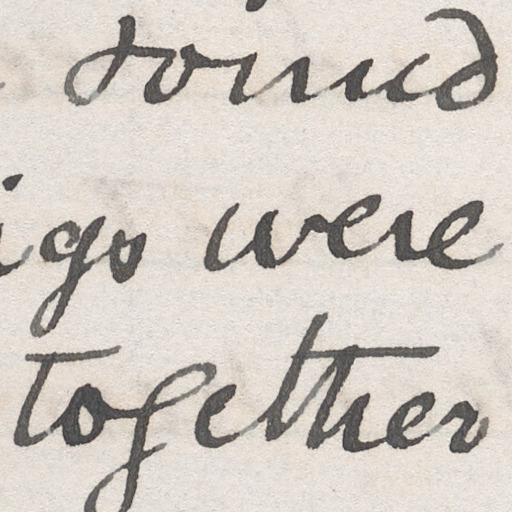 round
igs were
together